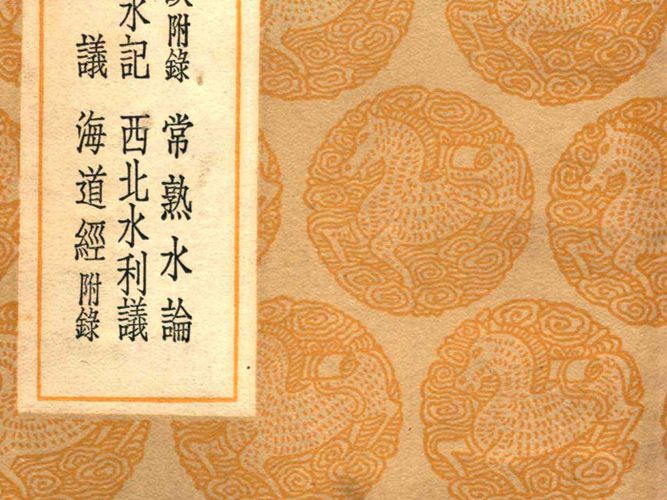 附錄 常熟水論
水記 西北水利議
議 海道經附錄